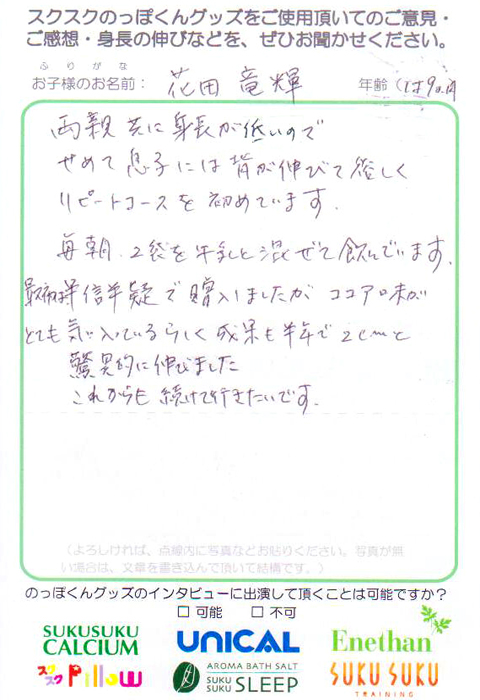 スクスクのっぽくんグッズをご使用頂いてのご意見・
ご感想・身長の伸びなどを、ぜひお聞かせください。
ふりがな
お子様のお名前： 花田 竜輝 年齢（
両親共に身長が低いので
せめて息子には背が伸びて欲しく
リピートコースを初めています。
毎朝、2袋を牛乳と混ぜて飲んでいます。
最初は半信半疑で購入しましたが ココア味が
とても気に入っているらしく成果も半年で2cmと
驚異的に伸びました
これからも続けて行きたいです。
（よろしければ、点線内に写真などお貼りください。写真が無
い場合は、文章を書き込んで頂いて結構です。）
のっぽくんグッズのインタビューに出演して頂くことは可能ですか？
□ 可能 □ 不可
SUKUSUKU CALCIUM
UNICAL
Enethan
スクスク Pillow
AROMA BATH SALT
SUKU SUKU SLEEP
SUKU SUKU
TRAINING